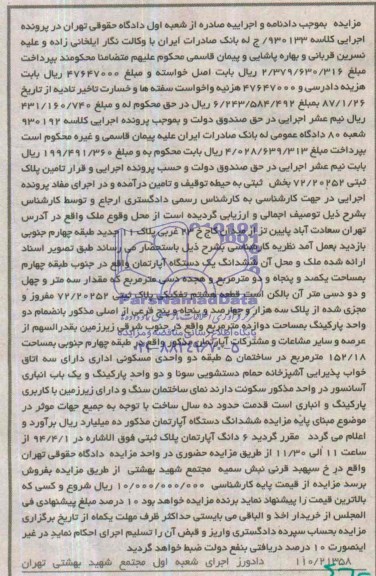 مزایده بموجب دادنامه و اجراییه صادره از شعبه اول دادگاه حقوقی تهران در پرونده
اجرایی کلاسه ۹۳۰۱۳۳/ ج له بانک صادرات ایران با وکالت نگار ایلخانی زاده و علیه
نسرین قربانی و بهاره پاشایی و پیمان قاسمی محکوم علیهم متضامنا محکومند بپرداخت
مبلغ ۲/۳۷۹/۶۳۰/۳۱۶ ریال بابت اصل خواسته و مبلغ ۴۷۶۴۷۰۰۰ ریال بابت
هزینه دادرسی و ۴۷۶۴۷۰۰۰ هزنیه واخواست سفته ها و خسارت تاخیر تادیه از تاریخ
۸۷/۱/۲۶ بمبلغ ۶/۲۴۳/۵۸۴/۴۹۲ ریال در حق محکوم له و مبلغ ۴۳۱/۱۶۰/۷۴۰
ریال نیم عشر اجرایی در حق صندوق دولت و بموجب پرونده اجرایی کلاسه ۹۳۰۱۹۲
شعبه ۸۰ دادگاه عمومی له بانک صادرات ایران علیه پیمان قاسمی و غیره محکوم است
بپرداخت مبلغ ۴/۰۲۸/۶۳۹/۳۱۳ ریال بابت محکوم به و مبلغ ۱۹۹/۴۹۱/۳۶۰ ریال
بابت نیم عشر اجرایی در حق صندوق دولت و حسب پرونده اجرایی و قرار تامین پلاک
ثبتی ۷۲/۲۰۲۵۲ بخش ثبتی به حیطه توقیف و تامین درآمده و در اجرای مفاد پرونده
اجرایی در جهت کارشناسی به کارشناس رسمی دادگستری ارجاع و توسط کارشناس
بشرح ذیل توصیف اجمالی و ارزیابی گردیده است از محل وقوع ملک واقع در آدرس
تهران سعادت آباد پایین تر از میدان کاج خ ۲۴ غربی پلاک ۱۱ جدید طبقه چهارم جنوبی
بازدید بعمل آمد نظریه کارشناسی بشرح ذیل باستحضار می رساند طبق تصویر اسناد
ارائه شده ملک و محل آن ششدانگ یک دستگاه آپارتمان واقع در جنوب طبقه چهارم
بمساحت یکصد و پنجاه و دو مترمربع و هجده دسی مترمربع که مقدار سه متر و چهل
و دو دسی متر آن بالکن است قطعه هشتم تفکیکی پلاک ثبتی ۷۲/۲۰۲۵۲ مفروز و
مجزی شده از پلاک سه هزار و چهارصد و پنجاه و پنج فرعی از اصلی مذکور بانضمام دو
واحد پارکینگ بمساحت دوازده مترمربع واقع در جنوب شرقی زیرزمین بقدرالسهم از
عرصه و سایر مشاعات و مشترکات آپارتمان مذکور واقع در طبقه چهارم جنوبی بمساحت
۱۵۲/۱۸ مترمربع در ساختمان ۵ طبقه دو واحدی مسکونی اداری دارای سه اتاق
خواب پذیرایی آشپزخانه حمام دستشویی سونا و دو واحد پارکینگ و یک باب انباری
آسانسور در واحد مذکور سکونت دارند نمای ساختمان سنگ و دارای زیرزمین با کاربری
پارکینگ و انباری است قدمت حدود ده سال ساخت با توجه به جمیع جهات موثر در
موضوع مبنای پایه مزایده ششدانگ دستگاه آپارتمان مذکور ده میلیارد ریال برآورد و
اعلام می گردد مقرر گردید ۶ دانگ آپارتمان پلاک ثبتی فوق الاشاره در ۹۴/۴/۱ از
ساعت ۱۱ الی ۱۱/۳۰ از طریق مزایده حضوری در واحد مزایده دادگاه حقوقی تهران
واقع در خ سپهبد قرنی نبش سمیه مجتمع شهید بهشتی از طریق مزایده بفروش
برسد مزایده از قیمت پایه کارشناسی ۱۰/۰۰۰/۰۰۰/۰۰۰ ریال شروع و کسی که
بالاترین قیمت را پیشنهاد نماید برنده مزایده خواهد بود ۱۰ درصد مبلغ پیشنهادی فی
المجلس از خریدار اخذ و الباقی می بایستی حداکثر ظرف مهلت یکماه از تاریخ برگزاری
مزایده بحساب سپرده دادگستری واریز و قبض آن را تسلیم اجرای احکام نماید در غیر
اینصورت ۱۰ درصد دریافتی بنفع دولت ضبط خواهد گردید
۱۱۰/۲۱۳۵۸ دادورز اجرای شعبه اول مجتمع شهید بهشتی تهران